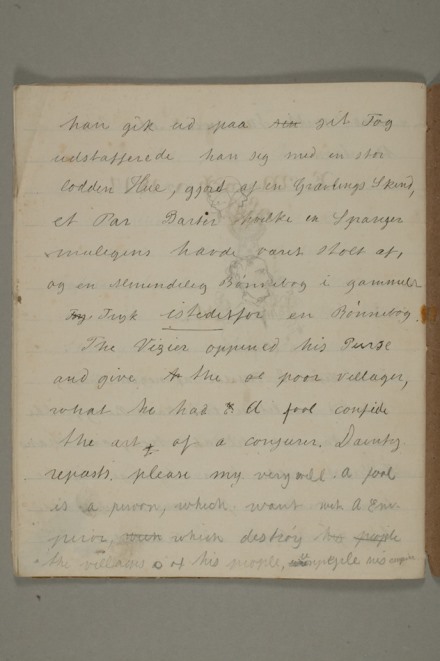 han gik ud paa sin sit Tog
udstafferede han seg med en stor
lodden Hue, gjord af en Grævlings Skind,
et Par Barter hvilke en Spanger
muligens havde været stolt af,
og en Almindelig Bønnebog i gammel
Tryk istedetfor en Bønnebog.
The Vizier oppened his Purse
and give the ol poor villager,
what he had A fool confide
the art of a conjurer. Dainty
repasts please my very well. A fool
is a person, which want A Em-
peror, which destroy people
the villains of his people,